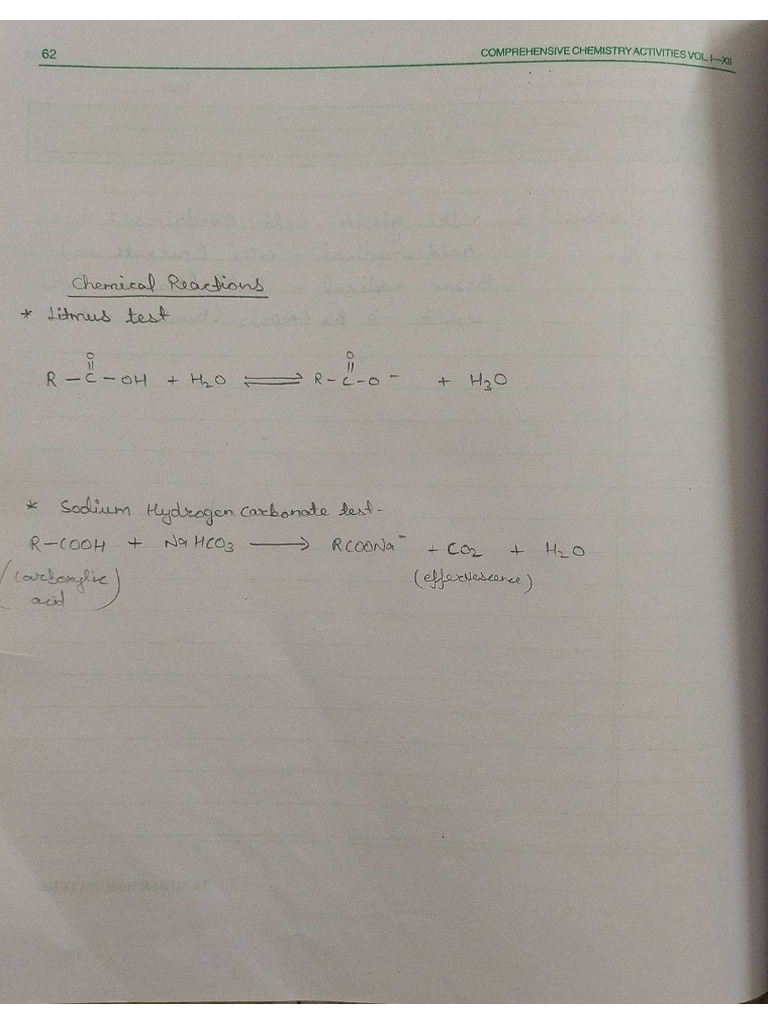 62 COMPREHENSIVE CHEMISTRY ACTIVITIES VOL. I—XII
Chemical Reactions
* Litmus test
O O
|| ||
R – C – OH + H₂O ⇌ R – C – O⁻ + H₃O
* Sodium Hydrogen Carbonate test-
R–COOH + NaHCO₃ ⟶ RCOONa⁻ + CO₂ + H₂O
(carboxylic (effervescence)
acid)